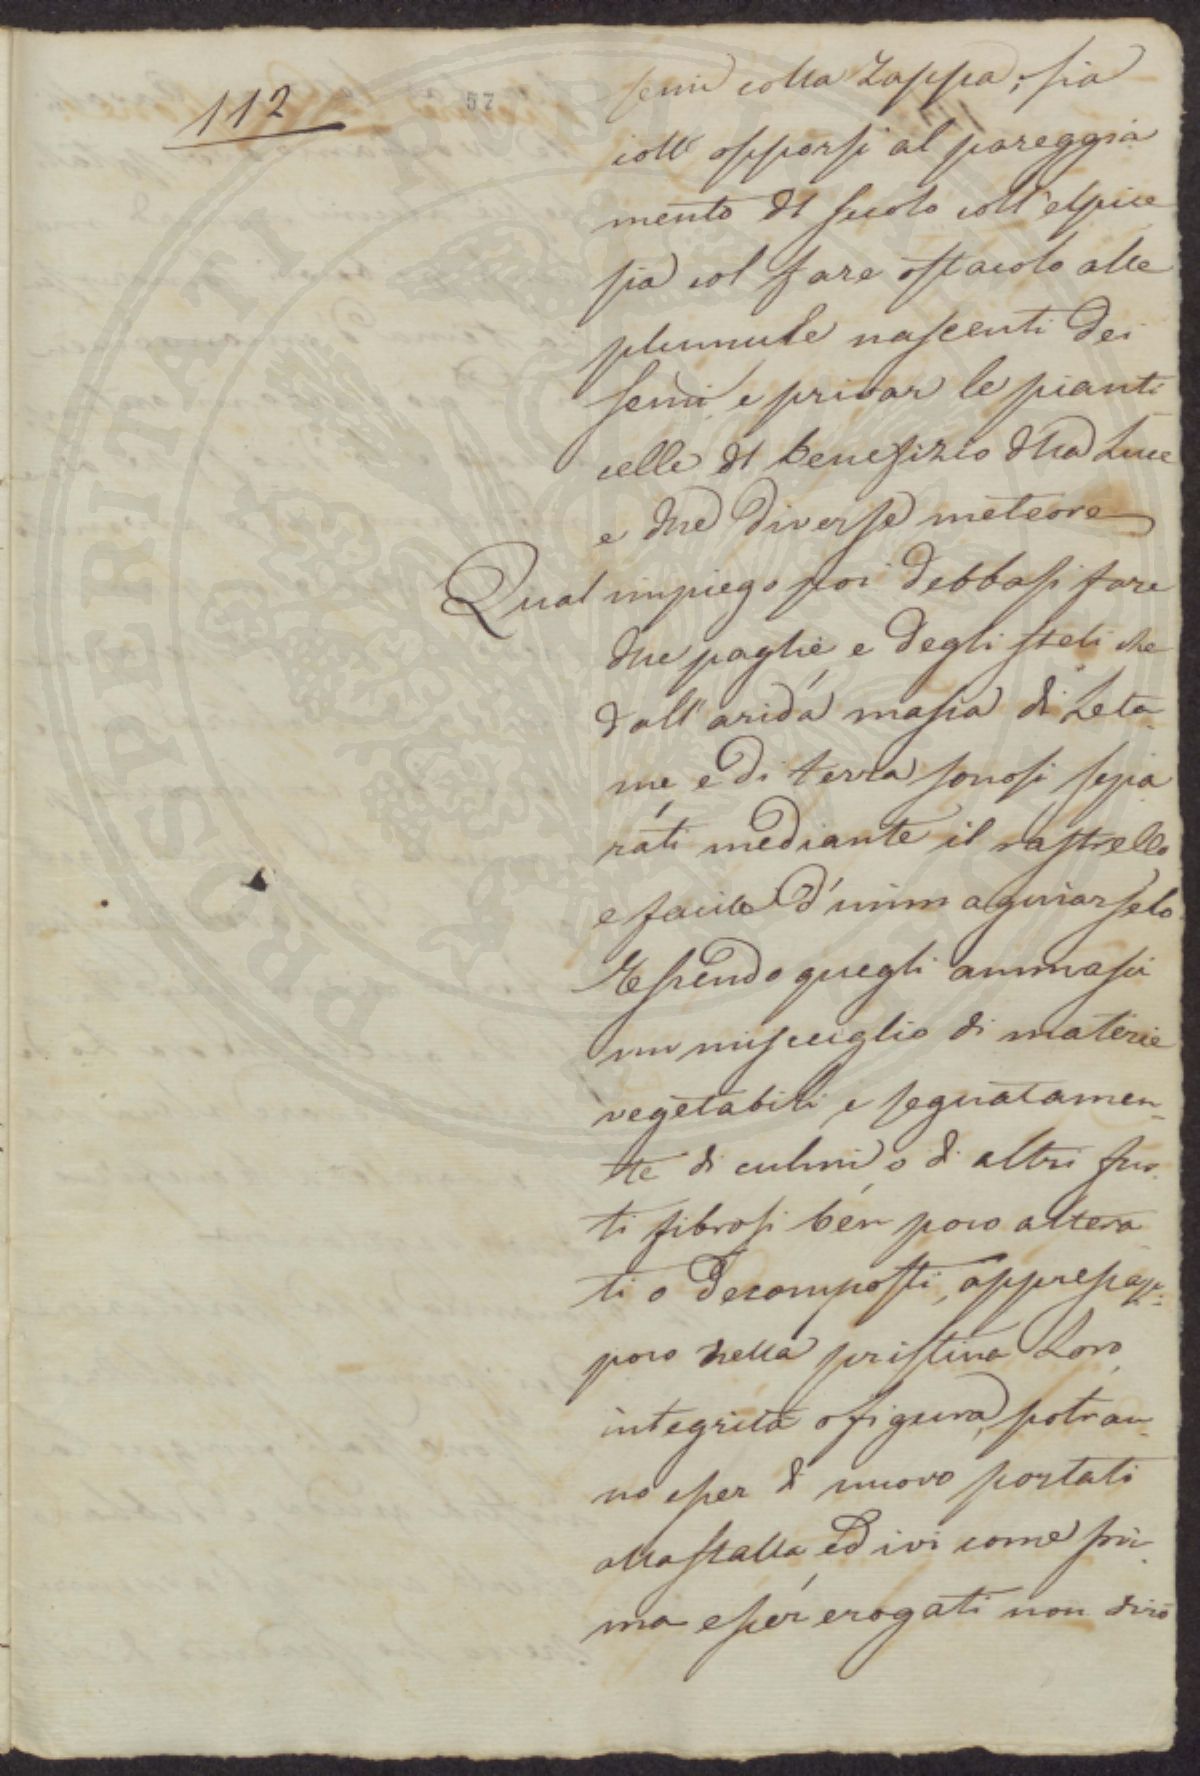 112
57
semi colla Zappa, sia
coll' opporsi al pareggia
mento dl suolo coll'elpice
sia col fare ostacolo alle
plumule nascenti dei
semi, e privar le pianti
celle dl benefizio dlla Luce
e dlle diverse meteore
Qual impiego poi debbasi fare
dlle paglie e degli steli che
dall' arida massa di Leta-
me e di terra sonosi sepa
rati mediante il rastrello
e facile d'immaginarselo.
Essendo quegli ammassi
un miscuiglio di materie
vegetabili, e segnatamen-
te di culmi o di altri fus-
ti fibrosi ben poco altera
ti o decomposti, appressap-
poco nella pristina Loro
integrità o figura, potran-
no esser di nuovo portati
alla stalla ed ivi come pri-
ma esser erogati non dirò
PROSPERITATI PUBLI